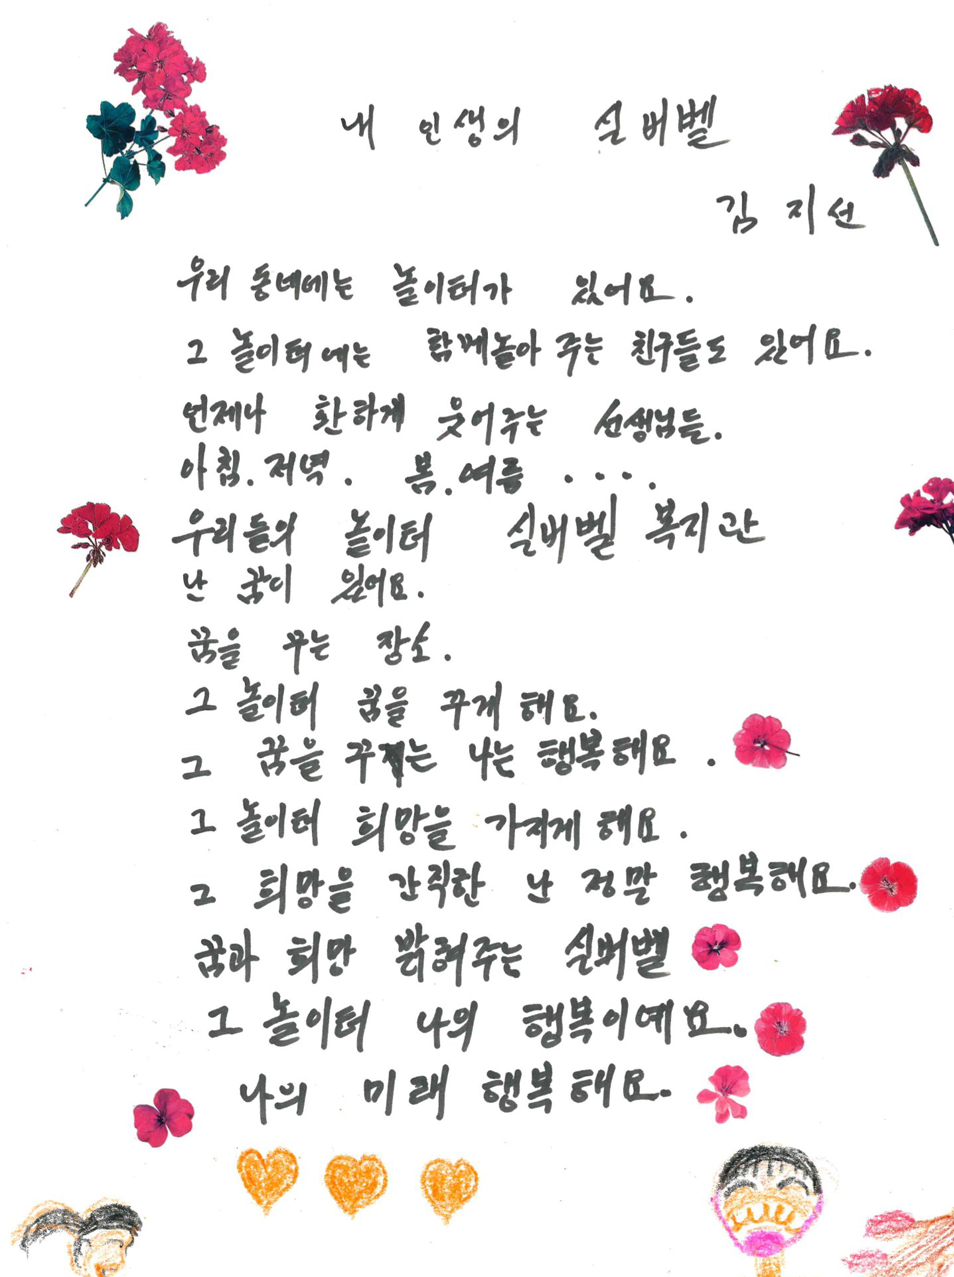 내 인생의 실버벨
김지선
우리 동네에는 놀이터가 있어요.
그 놀이터에는 함께놀아 주는 친구들도 있어요.
언제나 환하게 웃어주는 선생님들.
아침.저녁. 봄.여름 ....
우리들의 놀이터 실버벨 복지관
난 꿈이 있어요.
꿈을 꾸는 장소.
그 놀이터 꿈을 꾸게 해요.
그 꿈을 꾸는 나는 행복해요.
그 놀이터 희망을 가지게 해요.
그 희망을 간직한 난 정말 행복해요.
꿈과 희망 밝혀주는 실버벨
그 놀이터 나의 행복이예요.
나의 미래 행복해요.